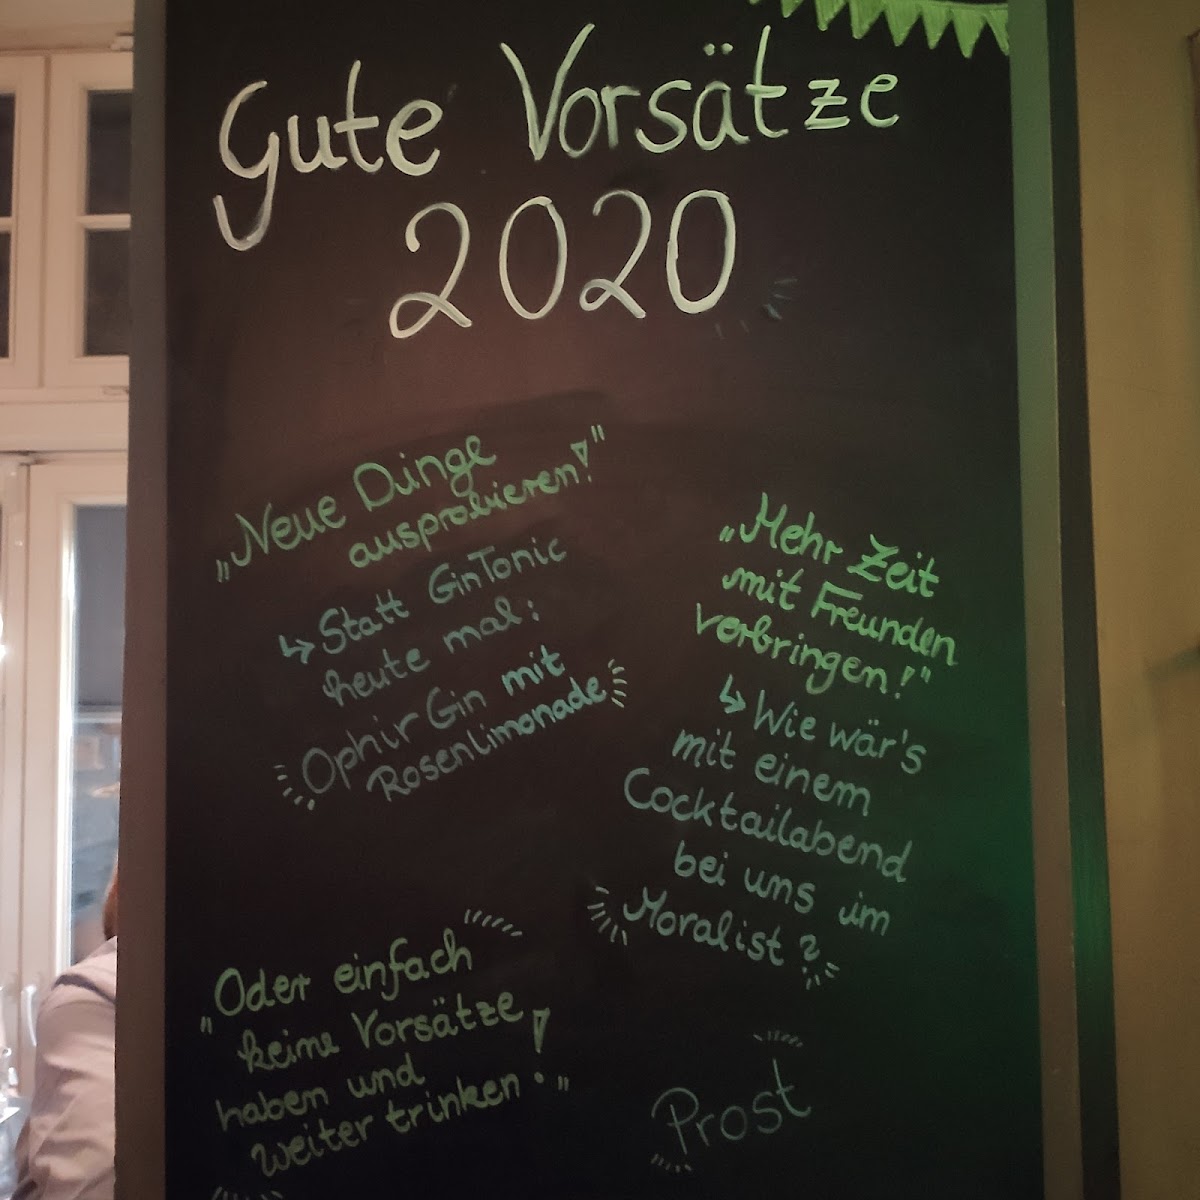 Gute Vorsätze
2020
„Neue Dinge
ausprobieren!"
↳ Statt GinTonic
heute mal:
Ophir Gin mit
Rosenlimonade
„Mehr Zeit
mit Freunden
verbringen!"
↳ Wie wär's
mit einem
Cocktailabend
bei uns im
Moralist?
„Oder einfach
keine Vorsätze
haben und
weiter trinken!"
Prost